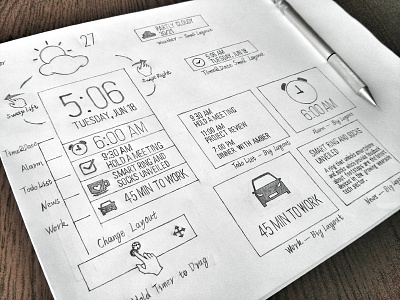 27
PARTLY CLOUDY
Weather - Small Layout
5:06 AM
TUESDAY, JUN 18
Time&Date Small Layout
Swipe Left
Swipe Right
5:06
TUESDAY, JUN 18
6:00 AM
9:30 AM
HOLD A MEETING
SMART RING AND
SUCKS UNVEILED
45 MIN TO WORK
Time&Date
Alarm
Todo List
News
Work
Change Layout
Hold Timer to Drag
9:30 AM
HOLD A MEETING
11:00 AM
PROJECT REVIEW
7:00 PM
DINNER WITH AMBER
Todo List - Big Layout
6:00 AM
Alarm - Big Layout
45 MIN TO WORK
Work - Big Layout
SMART RING AND SOCKS
UNVEILED
News - Big Layout